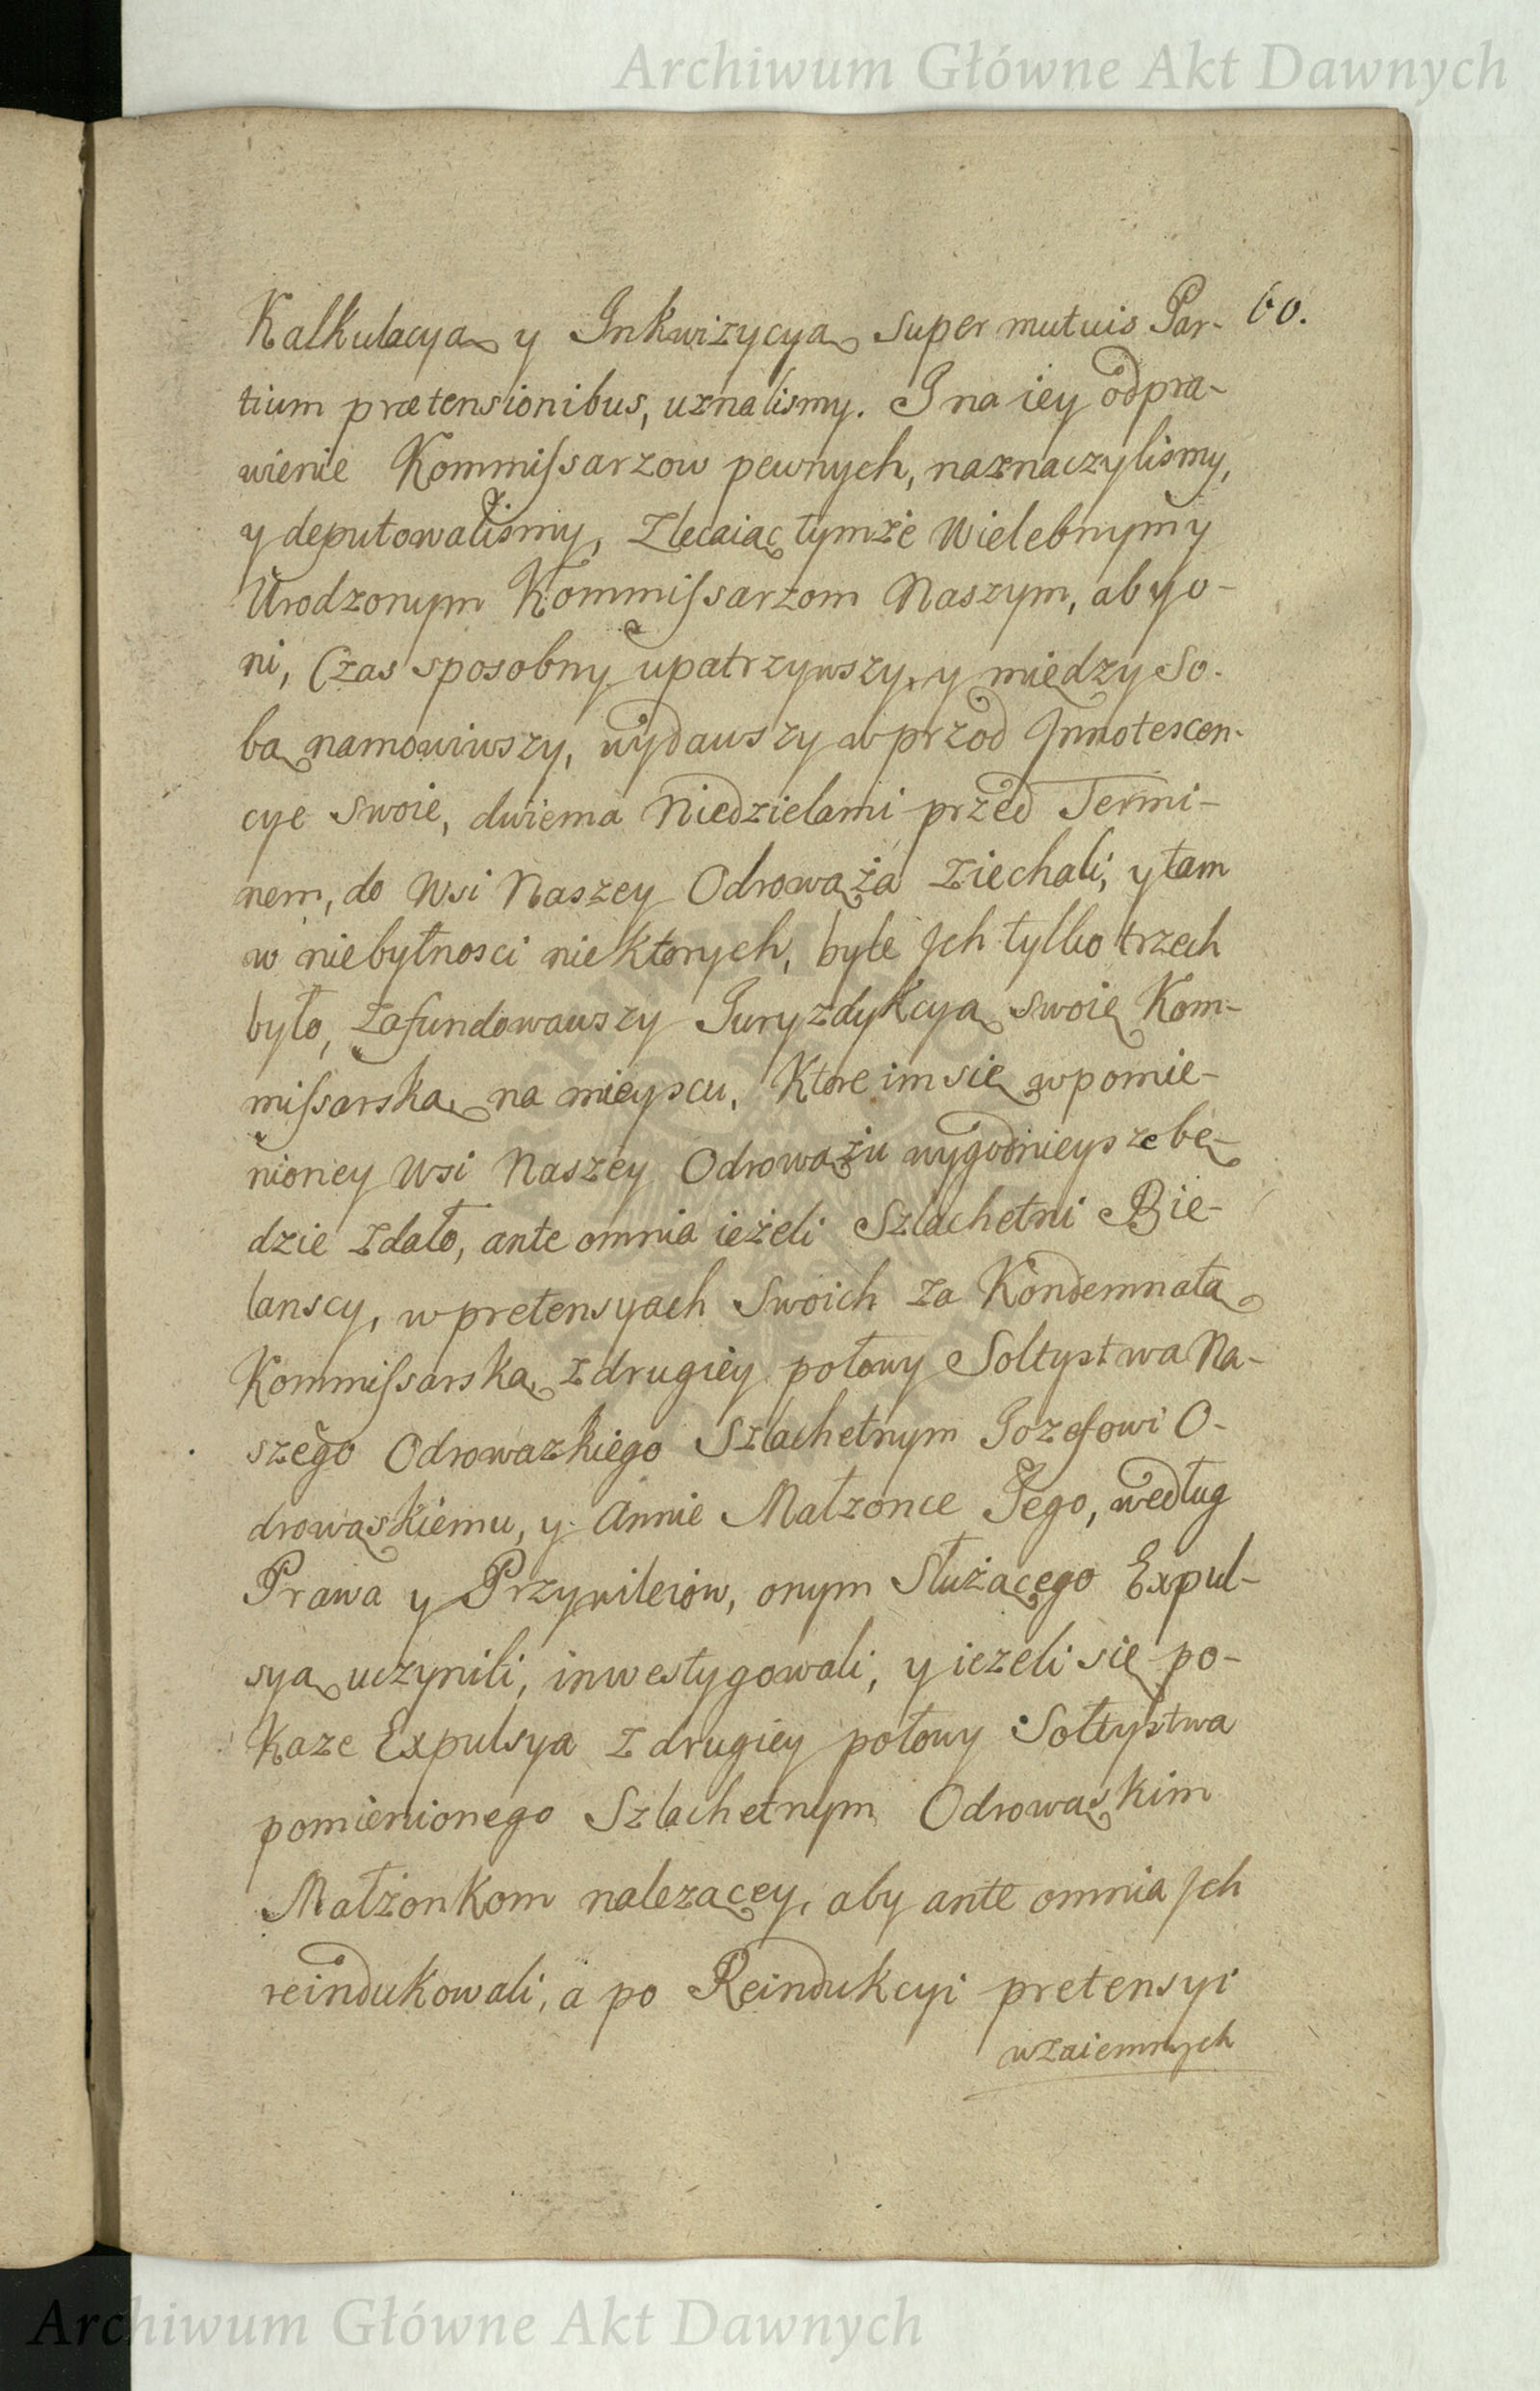 Archiwum Główne Akt Dawnych
60.
Kalkulacyą y Inkwizycyą super mutuis Par-
tium prætensionibus, uznalismy. I na iey odpra-
wienie Kommissarzow pewnych, naznaczylismy,
y deputowalismy, Zlecaiąc tymże Wielebnym y
Urodzonym Kommissarzom Naszym, aby o-
ni, Czas sposobny upatrzywszy, y między So-
bą namowiwszy, wydawszy wprzod Innotescen-
cye swoie, dwiema Niedzielami przed Termi-
nem, do Wsi Naszey Odrowąża Ziechali, y tam
w niebytnosci niektorych, byle Ich tylko trzech
było, Zafundowawszy Juryzdykcyą swoię Kom-
missarską, na mieyscu, Ktore im się w pomie-
nioney Wsi Naszey Odrowążu wygodnieysze bę-
dzie Zdało, ante omnia ieżeli Szlachetni Bie-
lanscy, w pretensyach Swoich Za Kondemnatą
Kommissarską, Z drugiey połowy Soltystwa Na-
szego Odrowazkiego Szlachetnym Jozefowi O-
drowąskiemu, y Annie Małzonce Jego, według
Prawa y Przywileiow, onym Służącego Expul-
syą uczynili, inwestygowali, y iezeli się po-
Kaze Expulsya Z drugiey połowy Sołtystwa
pomienionego Szlachetnym Odrowąskim
Małżonkom nalezącey, aby ante omnia Ich
reindukowali, a po Reindukcyi pretensyi
wzaiemnych
Archiwum Główne Akt Dawnych